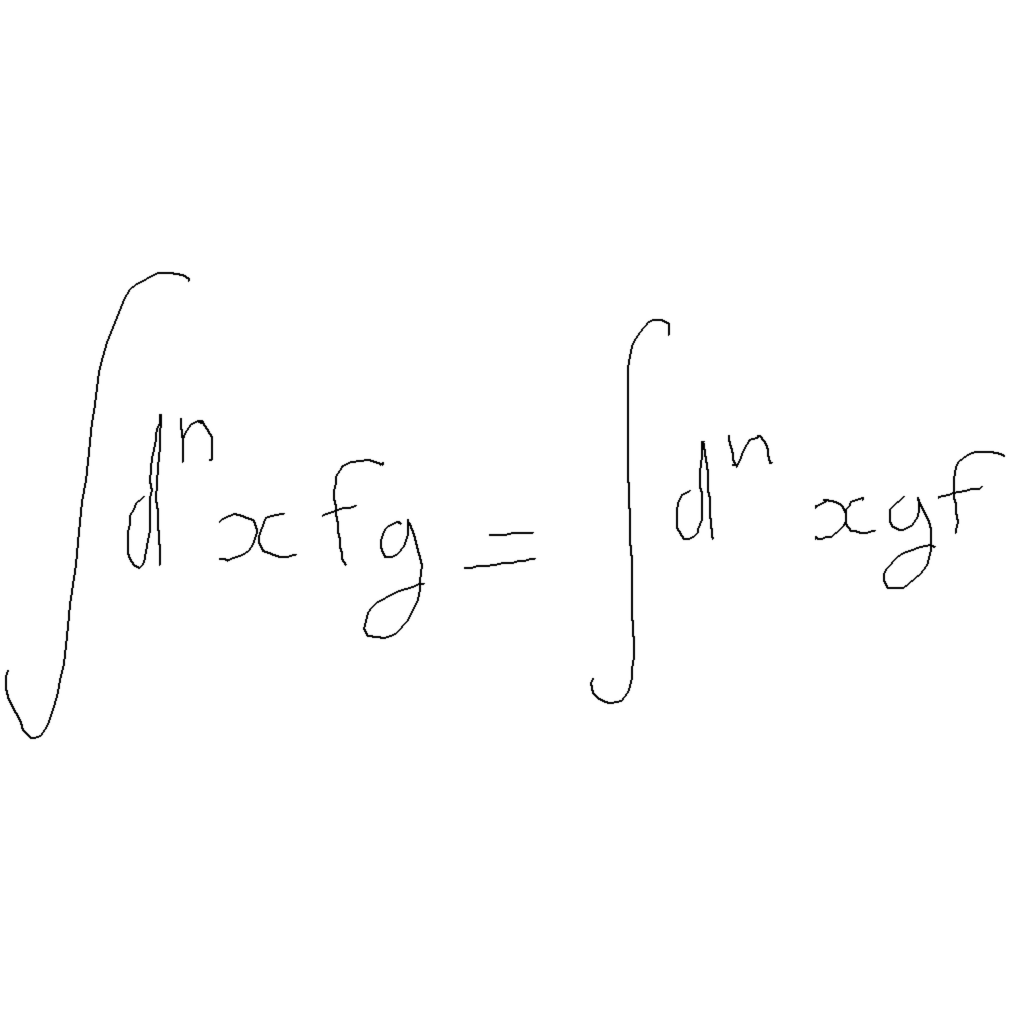 ∫dⁿxfg=∫dⁿxgf